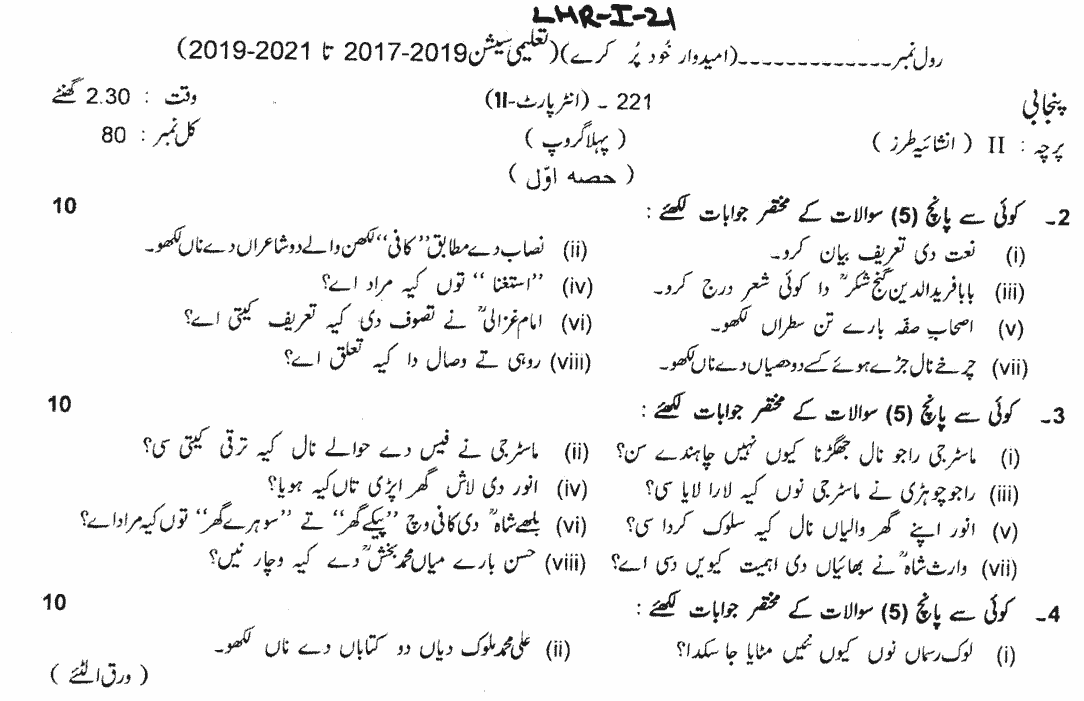 LHR-I-21
رول نمبر-------------(امیدوار خُود پُر کرے)(تعلیمی سیشن 2017-2019 تا 2019-2021)
پنجابی 221 ۔ (انٹر پارٹ-II) وقت : 2.30 گھنٹے
پرچہ : II (انشائیہ طرز) (پہلا گروپ) کل نمبر : 80
(حصہ اوّل)
2۔ کوئی سے پانچ (5) سوالات کے مختصر جوابات لکھئے : 10
(i) نعت دی تعریف بیان کرو۔ (ii) نصاب دے مطابق ’’کافی‘‘ لکھن والے دو شاعراں دے ناں لکھو۔
(iii) بابا فرید الدین گنج شکرؒ دا کوئی شعر درج کرو۔ (iv) ’’استغنا‘‘ توں کیہ مراد اے؟
(v) اصحابِ صفّہ بارے تن سطراں لکھو۔ (vi) امام غزالیؒ نے تصوف دی کیہ تعریف کیتی اے؟
(vii) چرخے نال جڑے ہوئے کسے دو حصیاں دے ناں لکھو۔ (viii) روہی تے وصال دا کیہ تعلق اے؟
3۔ کوئی سے پانچ (5) سوالات کے مختصر جوابات لکھئے : 10
(i) ماسٹر جی راجو نال جھگڑنا کیوں نہیں چاہندے سن؟ (ii) ماسٹر جی نے فیس دے حوالے نال کیہ ترقی کیتی سی؟
(iii) راجو چوہڑی نے ماسٹر جی نوں کیہ لارا لایا سی؟ (iv) انور دی لاش گھر اپڑی تاں کیہ ہویا؟
(v) انور اپنے گھر والیاں نال کیہ سلوک کردا سی؟ (vi) بلھے شاہؒ دی کافی وچ ’’پیکے گھر‘‘ تے ’’سوہرے گھر‘‘ توں کیہ مراد اے؟
(vii) وارث شاہؒ نے بھائیاں دی اہمیت کیویں دسی اے؟ (viii) حسن بارے میاں محمد بخشؒ دے کیہ وچار نیں؟
4۔ کوئی سے پانچ (5) سوالات کے مختصر جوابات لکھئے : 10
(i) لوک رسماں نوں کیوں نئیں مٹایا جا سکدا؟ (ii) علی محمد ملوک دیاں دو کتاباں دے ناں لکھو۔
(ورق الٹئے)